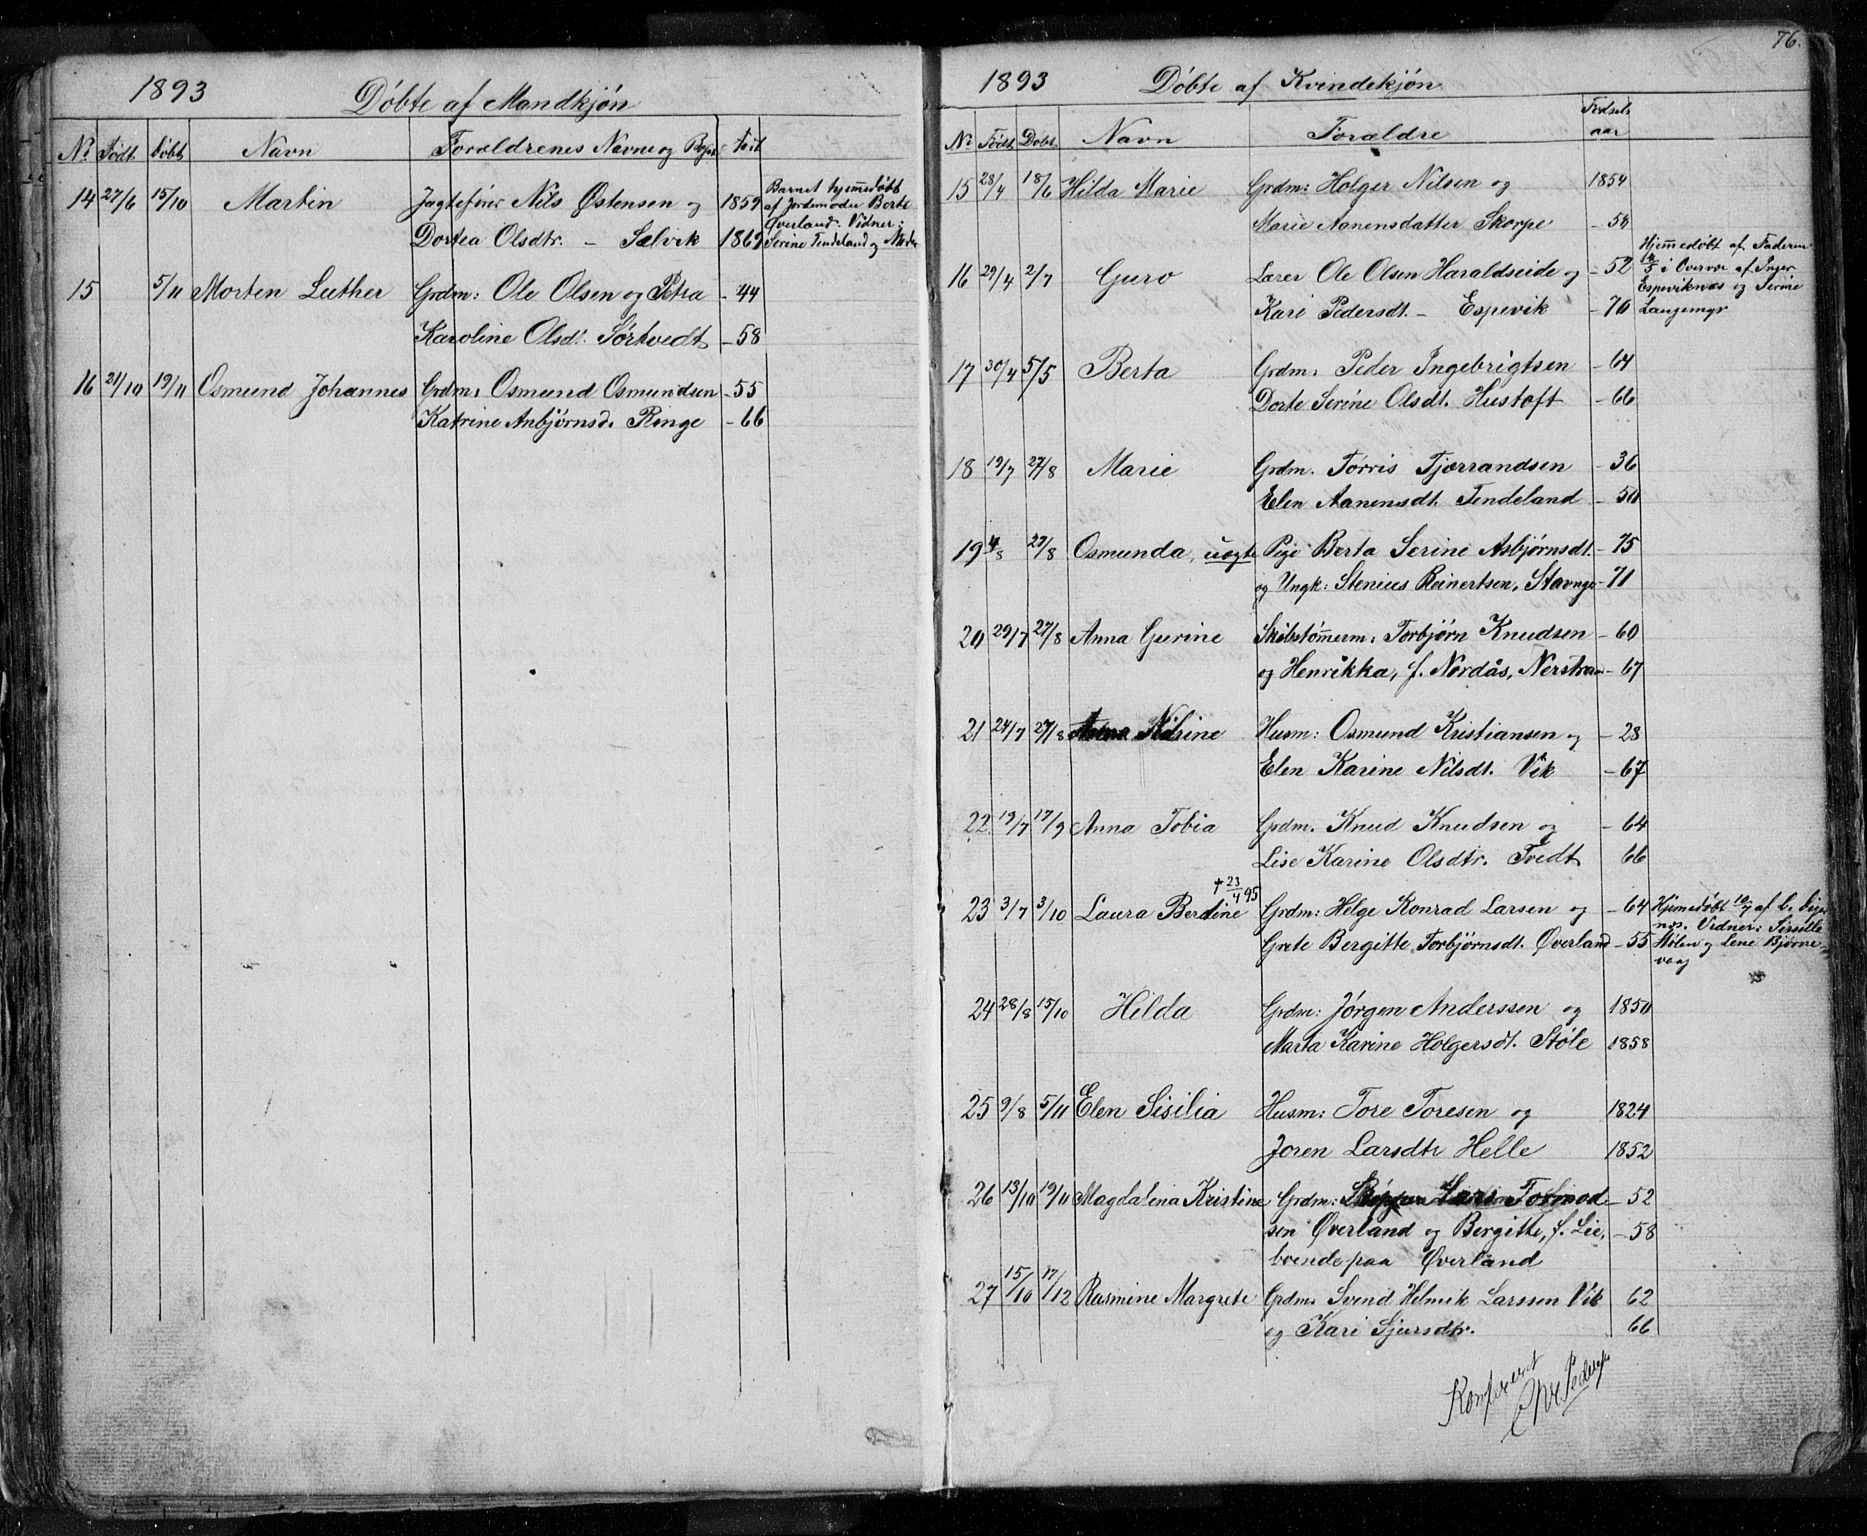 1893
Döbte af Mandkjön
No Födt döbt Navn Forældrenes Navne og
14 27/6 15/10 Martin Jagtefører Nils Østensen og 1859
Dortea Olsdtr. – Sælvik 1869
Barnet hjemmedøbt
af Jordemoder Berte
Øverland. Vidner:
Serine Tendeland og
15 5/11 Morten Luther Grdm: Ole Olsen og Petra – 44
Karoline Olsdt. Sørtvedt – 58
16 21/10 19/11 Osmund Johannes Grdm: Osmund Osmundsen – 55
Katrine Anbjørnsd. Ringe – 66
76.
1893
Döbte af Kvindekjön
No Födt Döbt Navn Forældre Fødsels
aar
15 28/4 18/6 Hilda Marie Grdm: Holger Nilsen og 1854
Marie Aanensdatter Skorpe – 54
16 29/4 2/7 Guro Lærer Ole Olsen Haraldseide og – 52
Kari Pedersdt. – Espevik – 70
Hjemmedøbt af Faderen
i Overvær af Inger
Espeviknes og Serine
Langemyr
17 30/4 5/5 Berta Grdm: Peder Ingebrigtsen – 64
Dorte Serine Olsdt. Hustoft – 66
18 19/7 27/8 Marie Grdm. Torris Tjærandsen – 36
Elen Aanensdt. Tendeland – 50
19 4/8 27/8 Osmunda, uægte Pige Berta Serine Asbjørnsdt. – 75
og Ungk: Stenius Reinertsen, Stavnge – 71
20 29/7 27/8 Anna Gurine Skibstømmerm: Torbjørn Knudsen – 60
og Henrikka, f. Nordås, Nerstran – 67
21 24/7 27/8 Nilsine Husm: Osmund Kristiansen og – 28
Elen Karine Nilsdt. Vik – 67
22 19/7 17/9 Anna Tobia Grdm. Knud Knudsen og – 64
Lise Karine Olsdtr. Tvedt 66
† 23/4 95
23 3/7 3/10 Laura Berdine Grdm: Helge Konrad Larsen og – 64
Grete Bergitte Torbjørnsdt. Øverland – 55
Hjemmedøbt 10/7 af L.
nes. Vidner: Sissille
Stølen og Lene Bjørne-
vaag
24 28/8 15/10 Hilda Grdm: Jørgen Anderssen og 1850
Marta Karine Holgersdt. Støle 1858
25 9/8 5/11 Elen Sisilia Husm: Tore Toresen og 1824
Joren Larsdtr Helle 1852
26 13/10 19/11 Magdalena Kristine Grdm: Lars Tormod – 52
sen Øverland og Bergitte, f. Lie, – 58
boende paa Øverland
27 15/10 17/12 Rasmine Margrete Grdm. Svend Helmik Larssen Vik 62
og Kari Sjursdtr. 66
Konfereret